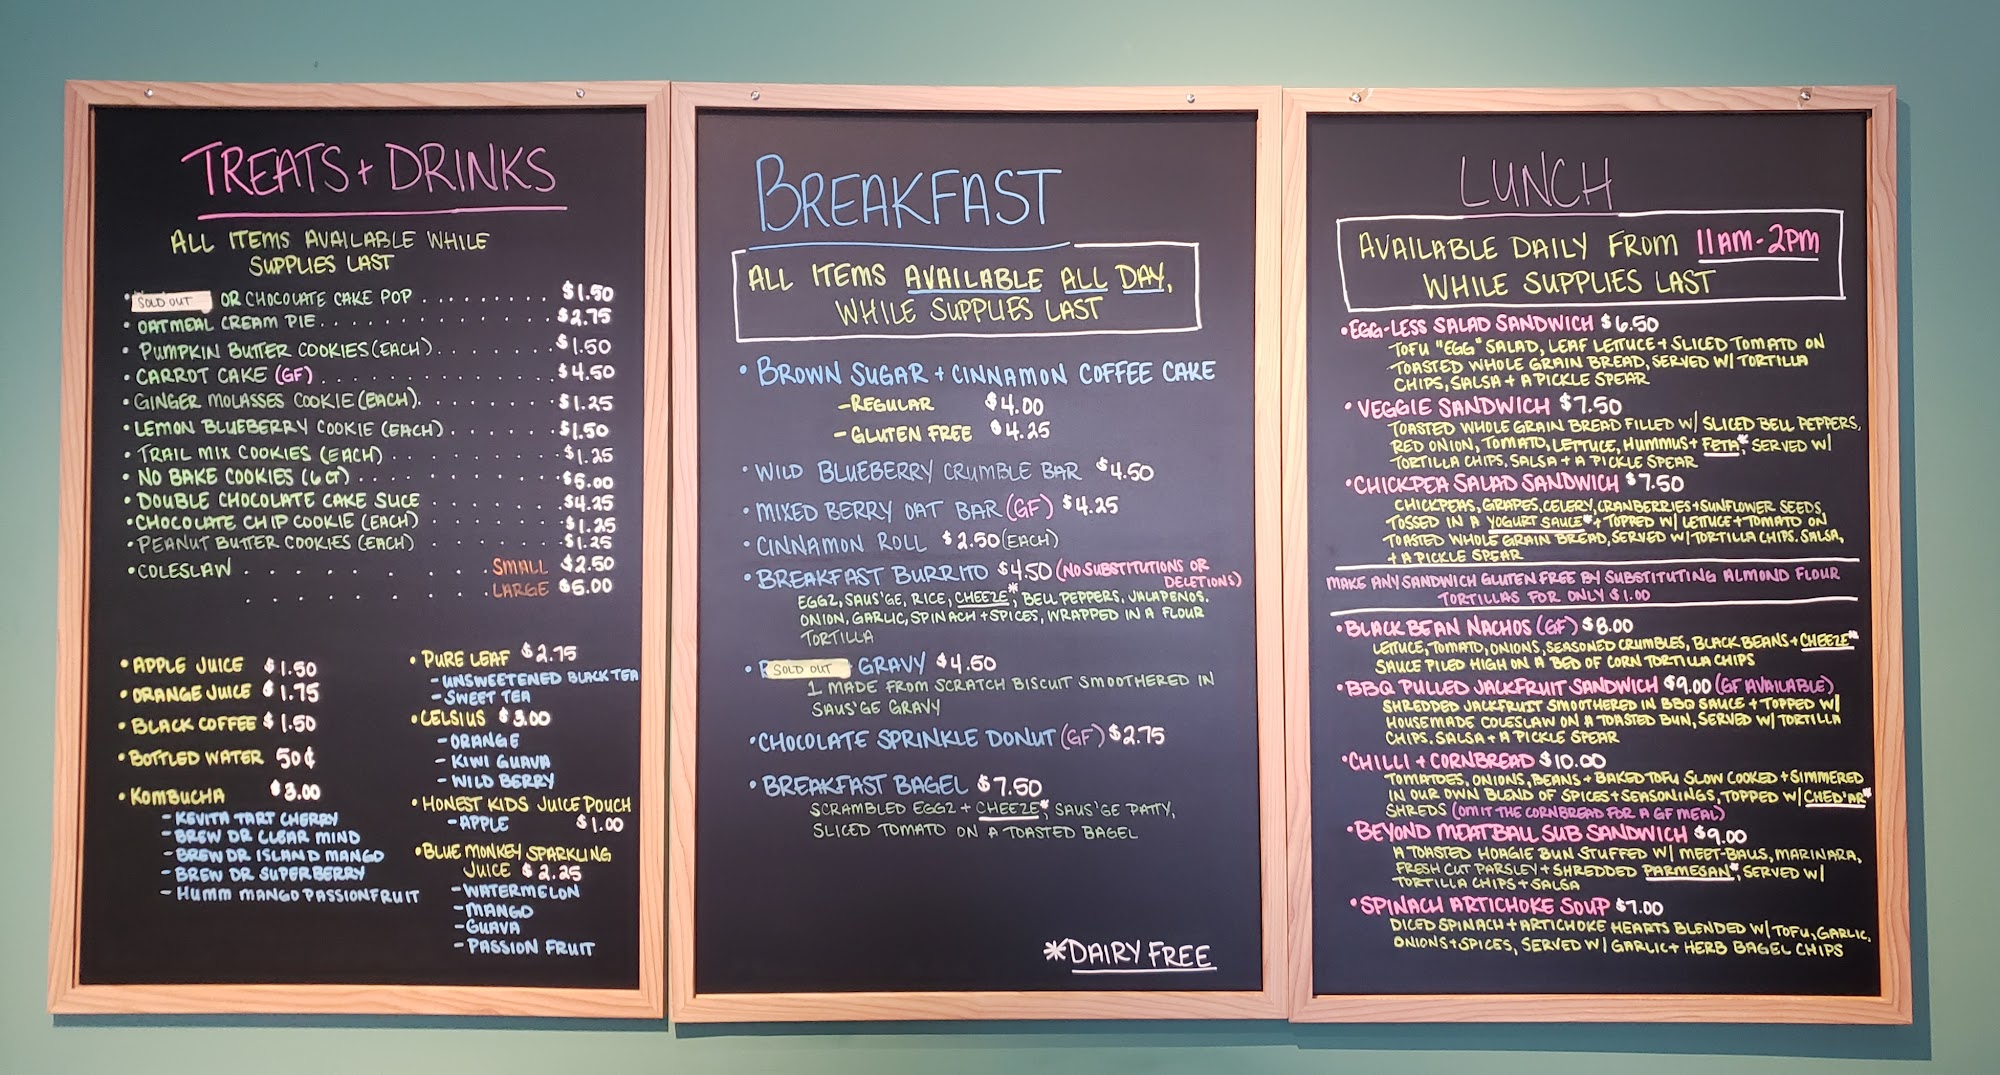 TREATS + DRINKS
ALL ITEMS AVAILABLE WHILE
SUPPLIES LAST
• SOLD OUT OR CHOCOLATE CAKE POP . . . . . . . . $1.50
• OATMEAL CREAM PIE. . . . . . . . . . . . . . $2.75
• PUMPKIN BUTTER COOKIES (EACH). . . . . . . $1.50
• CARROT CAKE (GF) . . . . . . . . . . . . . . $4.50
• GINGER MOLASSES COOKIE (EACH). . . . . . . . $1.25
• LEMON BLUEBERRY COOKIE (EACH) . . . . . . $1.50
• TRAIL MIX COOKIES (EACH) . . . . . . . . . $1.25
• NO BAKE COOKIES (6 CT) . . . . . . . . . . $5.00
• DOUBLE CHOCOLATE CAKE SLICE . . . . . . . $4.25
• CHOCOLATE CHIP COOKIE (EACH) . . . . . . . $1.25
• PEANUT BUTTER COOKIES (EACH) . . . . . . . $1.25
• COLESLAW . . . . . . . . . . SMALL $2.50
. . . . . . . . LARGE $5.00
• APPLE JUICE $1.50
• ORANGE JUICE $1.75
• BLACK COFFEE $1.50
• BOTTLED WATER 50¢
• KOMBUCHA $3.00
- KEVITA TART CHERRY
- BREW DR CLEAR MIND
- BREW DR ISLAND MANGO
- BREW DR SUPERBERRY
- HUMM MANGO PASSIONFRUIT
• PURE LEAF $2.75
- UNSWEETENED BLACK TEA
- SWEET TEA
• CELSIUS $3.00
- ORANGE
- KIWI GUAVA
- WILD BERRY
• HONEST KIDS JUICE POUCH
- APPLE $1.00
• BLUE MONKEY SPARKLING
JUICE $2.25
- WATERMELON
- MANGO
- GUAVA
- PASSION FRUIT
BREAKFAST
ALL ITEMS AVAILABLE ALL DAY,
WHILE SUPPLIES LAST
• BROWN SUGAR + CINNAMON COFFEE CAKE
- REGULAR $4.00
- GLUTEN FREE $4.25
• WILD BLUEBERRY CRUMBLE BAR $4.50
• MIXED BERRY OAT BAR (GF) $4.25
• CINNAMON ROLL $2.50 (EACH)
• BREAKFAST BURRITO $4.50 (NO SUBSTITUTIONS OR
DELETIONS)
EGGZ, SAUS'GE, RICE, CHEEZE*, BELL PEPPERS, JALAPENOS,
ONION, GARLIC, SPINACH + SPICES, WRAPPED IN A FLOUR
TORTILLA
• SOLD OUT GRAVY $4.50
1 MADE FROM SCRATCH BISCUIT SMOOTHERED IN
SAUS'GE GRAVY
• CHOCOLATE SPRINKLE DONUT (GF) $2.75
• BREAKFAST BAGEL $7.50
SCRAMBLED EGGZ + CHEEZE*, SAUS'GE PATTY,
SLICED TOMATO ON A TOASTED BAGEL
*DAIRY FREE
LUNCH
AVAILABLE DAILY FROM 11AM-2PM
WHILE SUPPLIES LAST
• EGG-LESS SALAD SANDWICH $6.50
TOFU "EGG" SALAD, LEAF LETTUCE + SLICED TOMATO ON
TOASTED WHOLE GRAIN BREAD, SERVED W/ TORTILLA
CHIPS, SALSA + A PICKLE SPEAR
• VEGGIE SANDWICH $7.50
TOASTED WHOLE GRAIN BREAD FILLED W/ SLICED BELL PEPPERS,
RED ONION, TOMATO, LETTUCE, HUMMUS + FETA*, SERVED W/
TORTILLA CHIPS, SALSA + A PICKLE SPEAR
• CHICKPEA SALAD SANDWICH $7.50
CHICKPEAS, GRAPES, CELERY, CRANBERRIES + SUNFLOWER SEEDS,
TOSSED IN A YOGURT SAUCE* + TOPPED W/ LETTUCE + TOMATO ON
TOASTED WHOLE GRAIN BREAD, SERVED W/ TORTILLA CHIPS, SALSA,
+ A PICKLE SPEAR
MAKE ANY SANDWICH GLUTEN FREE BY SUBSTITUTING ALMOND FLOUR
TORTILLAS FOR ONLY $1.00
• BLACK BEAN NACHOS (GF) $8.00
LETTUCE, TOMATO, ONIONS, SEASONED CRUMBLES, BLACK BEANS + CHEEZE*
SAUCE PILED HIGH ON A BED OF CORN TORTILLA CHIPS
• BBQ PULLED JACKFRUIT SANDWICH $9.00 (GF AVAILABLE)
SHREDDED JACKFRUIT SMOOTHERED IN BBQ SAUCE + TOPPED W/
HOUSEMADE COLESLAW ON A TOASTED BUN, SERVED W/ TORTILLA
CHIPS, SALSA + A PICKLE SPEAR
• CHILLI + CORNBREAD $10.00
TOMATOES, ONIONS, BEANS + BAKED TOFU SLOW COOKED + SIMMERED
IN OUR OWN BLEND OF SPICES + SEASONINGS, TOPPED W/ CHED'AR*
SHREDS (OMIT THE CORNBREAD FOR A GF MEAL)
• BEYOND MEATBALL SUB SANDWICH $9.00
A TOASTED HOAGIE BUN STUFFED W/ MEET-BALLS, MARINARA,
FRESH CUT PARSLEY + SHREDDED PARMESAN*, SERVED W/
TORTILLA CHIPS + SALSA
• SPINACH ARTICHOKE SOUP $7.00
DICED SPINACH + ARTICHOKE HEARTS BLENDED W/ TOFU, GARLIC,
ONIONS + SPICES, SERVED W/ GARLIC + HERB BAGEL CHIPS